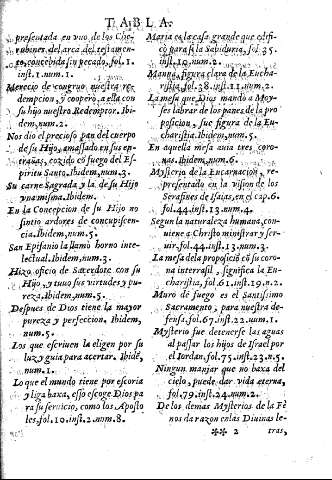 TABLA.
presentada en vno de los Che-
rubines del arca del testamen-
to, concebida sin pecado, fol. 1.
inst. 1. num. 1.
Merecio de congruo nuestra re-
dempcion, y cooperò a ella con
su hijo nuestro Redemptor. Ibi-
dem, num. 2.
Nos dò el precioso pan del cuerpo
de su Hijo, amassado en sus en-
trañas, cozido cõ fuego del Es-
piritu Santo. Ibidem, num. 3.
Su carne Sagrada y la de su Hijo
vna misma. Ibidem.
En la Concepcion de su Hijo no
sintio ardores de concupiscen-
cia. Ibidem, num. 5.
San Epifanio la llamò horno inte-
lectual. Ibidem, num. 3.
Hizo oficio de Sacerdote con su
Hijo, y tuuo sus virtudes y pu-
reza. Ibidem, num. 5.
Despues de Dios tiene la mayor
pureza y perfeccion. Ibidem,
num. 5.
Los que escriuen la eligen por su
luz y guia para acertar. Ibidẽ,
num. 1.
Lo que el mundo tiene por escoria
y liga baxa, esso escoge Dios pa
ra su seruicio, como los Aposto
les, fol. 10. inst. 2. num. 8.
Maria es la casa grande que edifi-
cò para si la Sabiduria, fol. 35.
inst. 10. num. 2.
Mannà, figura clara de la Eucha-
ristia, fol. 38. inst. 11. num. 2.
La mesa que Dios mandò a Moy-
ses labrar de los panes de la pro
posicion, fue figura de la Eu-
charistia. Ibidem, num. 5.
En aquella mesa auia tres coro-
nas. Ibidem, num. 6.
Mysterio de la Encarnacion, re-
presentado en la vision de los
Serafines de Isaias, en el cap. 6.
fol. 44. inst. 13. num. 4.
Segun la naturaleza humana, con-
uiene a Christo ministrar y ser-
uir. fol. 44. inst. 13. num. 3.
La mesa de la proposiciõ cõ su coro-
na interrasil, significa la Eu-
charistia, fol. 61. inst. 19. n. 2.
Muro de fuego es el Santissimo
Sacramento, para nuestra de-
fensa, fol. 67. inst. 22. num. 1.
Mysterio fue detenerse las aguas
al passar los hijos de Israel por
el Iordan, fol. 75. inst. 23. n. 5.
Ningun manjar que no baxa del
cielo, puede dar vida eterna,
fol. 79. inst. 24. num. 2.
De los demas Mysterios de la Fè
nos da razon en las Diuinas le-
** 2 tras,